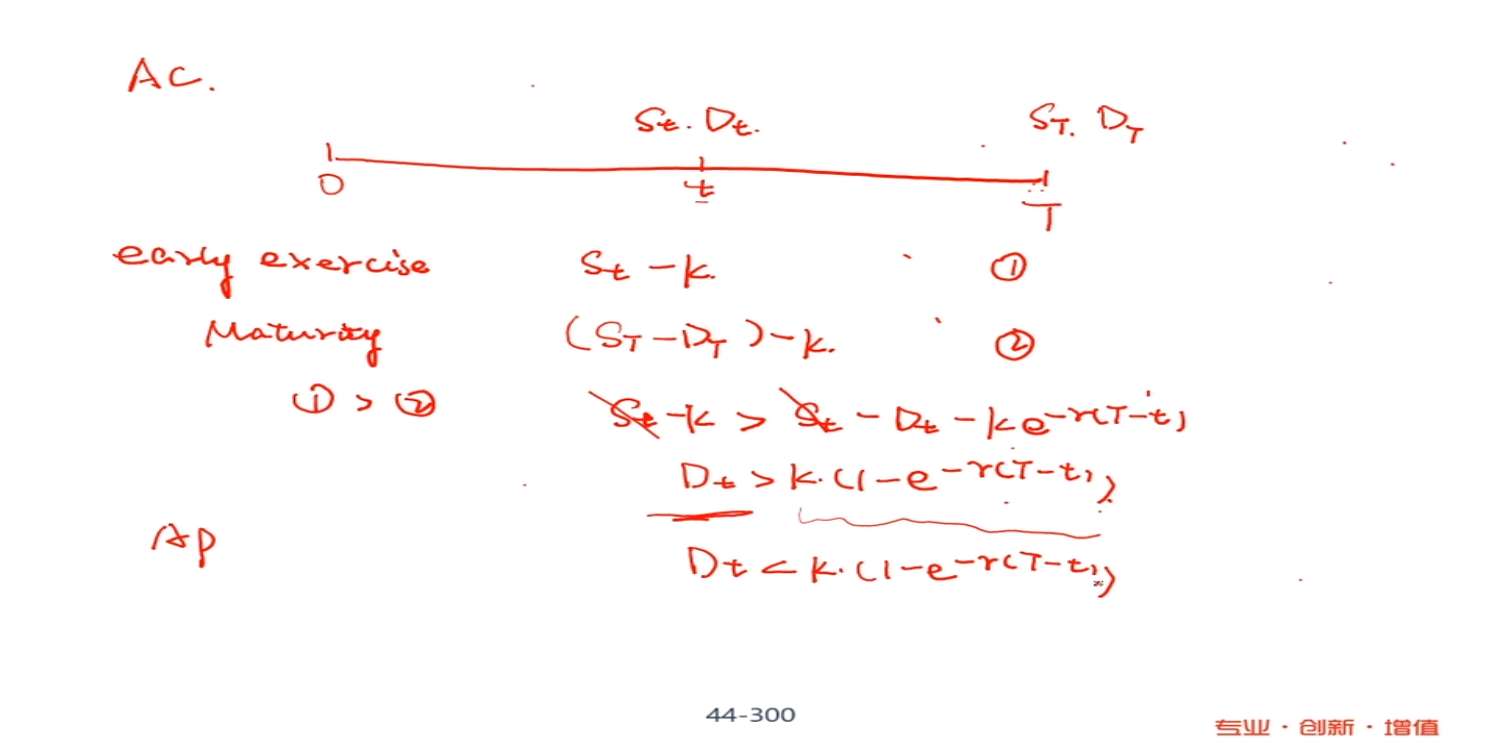 AC.
St. Dt.
ST. DT
0
t
T
early exercise St - k. ①
Maturity (ST - DT) - k. ②
① > ② St - k > St - Dt - ke^-r(T-t)
Dt > k.(1 - e^-r(T-t))
Ap
Dt < k.(1 - e^-r(T-t))
44-300
专业·创新·增值